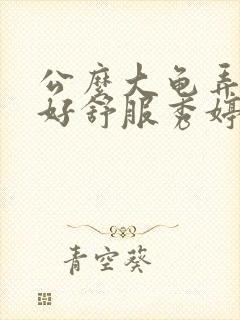 公麽大龟弄
好舒服秀婷
青空葵